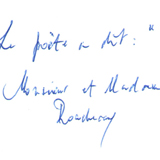 Le poète a dit : "
Monsieur et Madame